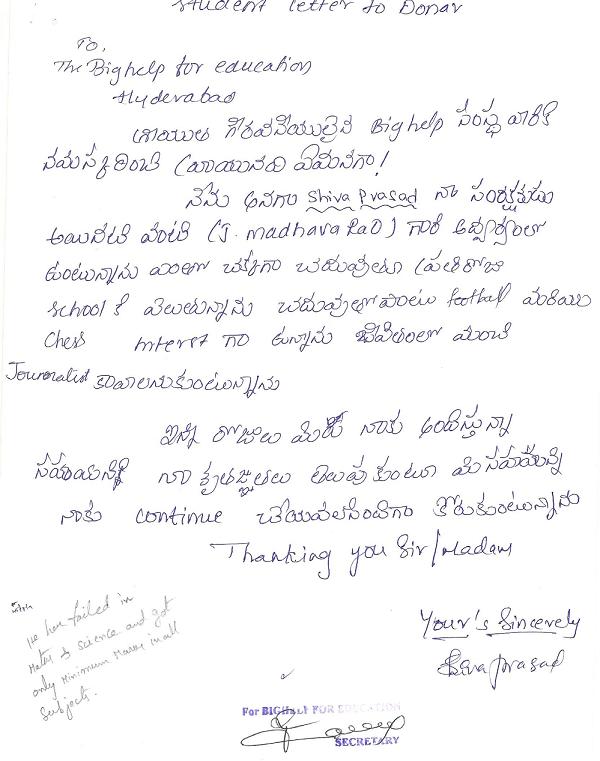 Student letter to Donar
To,
The Bighelp for education
Hyderabad
గౌరవనీయులైన Bighelp సంస్థ వారికి
నమస్కరించి వ్రాయునది ఏమనగా!
నేను అనగా Shiva Prasad నా సంరక్షకుడు
అయినటువంటి (J. madhava Rao) గారి ఆధ్వర్యంలో
ఉంటున్నాను చక్కగా చదువుతూ ప్రతిరోజు
school కి వెలుతున్నాను చదువుతోపాటు football మరియు
Chess interest గా ఉన్నాను జీవితంలో మంచి
Journalist కావాలనుకుంటున్నాను
ఇన్ని రోజులు మీరు నాకు అందిస్తున్నా
సహాయానికి నా కృతజ్ఞతలు తెలుపుకుంటూ మీ సహాయాన్ని
నాకు continue చేయవలసిందిగా కోరుకుంటున్నాను
Thanking you Sir/Madam
Your's Sincerely
Shiva prasad
He has failed in
Maths & science and got
only Minimum Marks in all
Subjects.
For BIGHELP FOR EDUCATION
SECRETARY